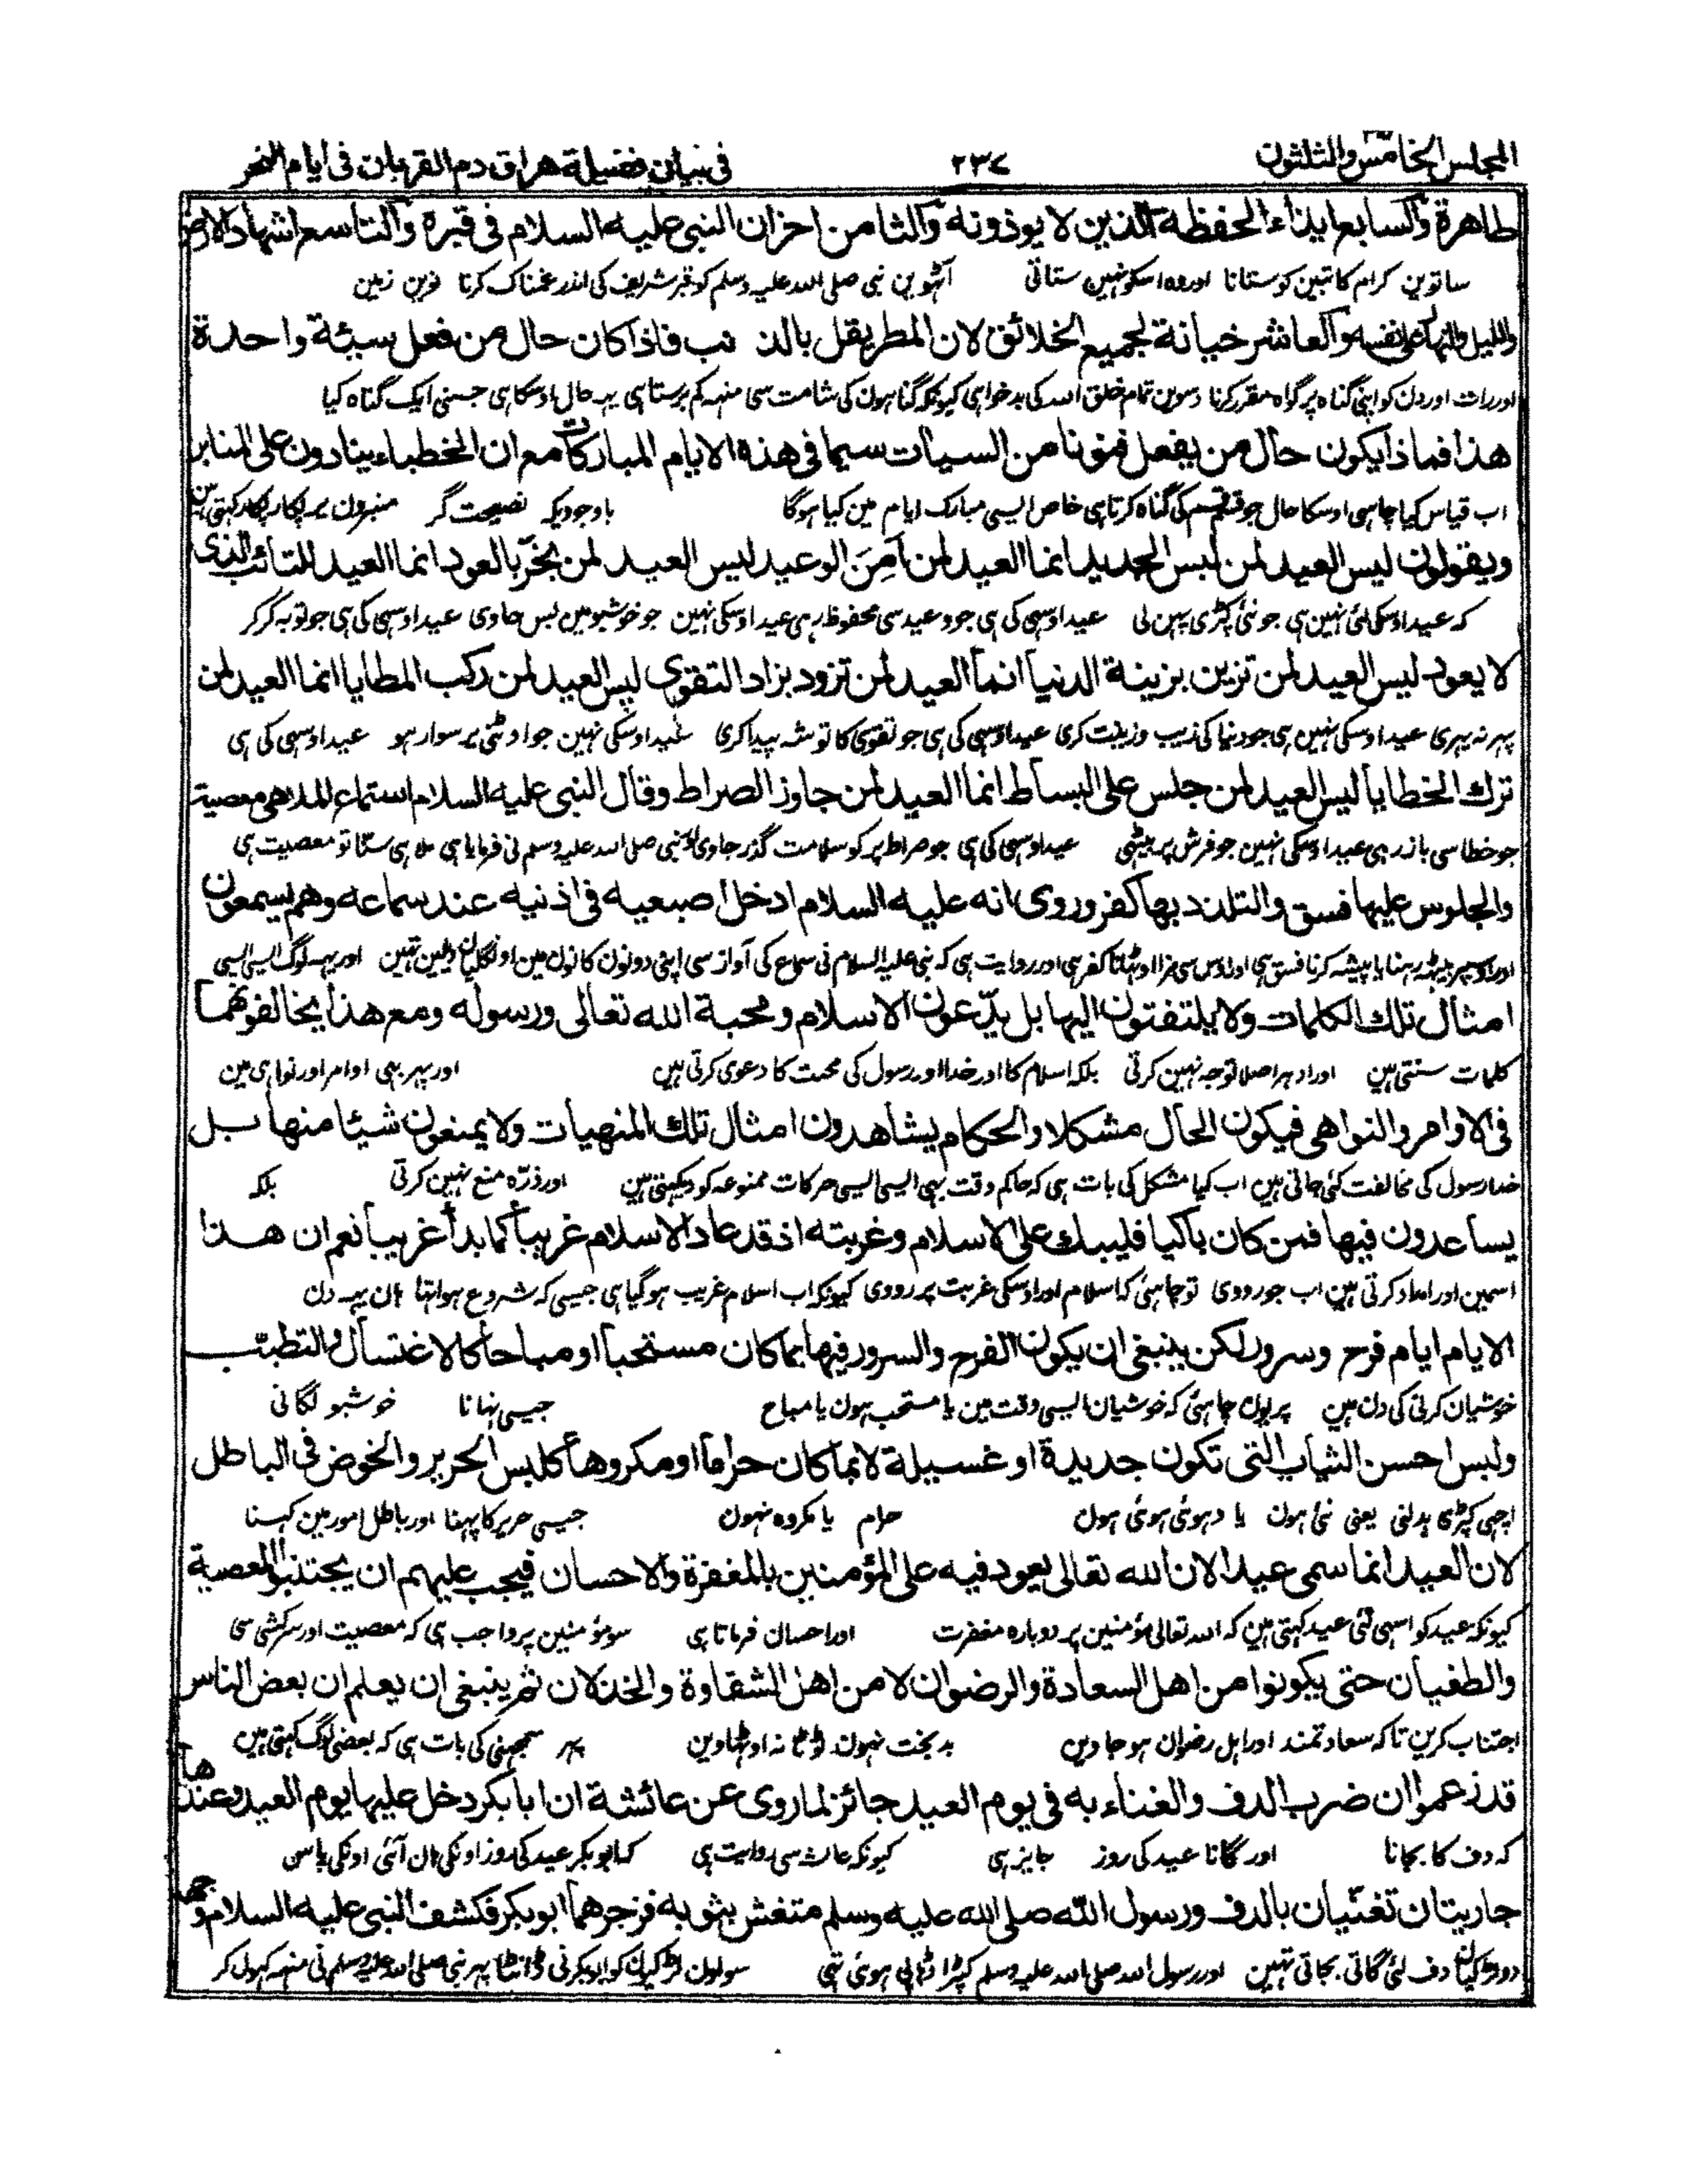 المجلس الخامس والثلثون ٢٣٧ فى بيان فضيلة هراق دم القربان فى ايام النحر
طاهرة والسابع ايذاء الحفظة الذين لا يوذونه والثامن احزان النبى عليه السلام فى قبره والتاسع اشهاد الارض
ساتوين كرام كاتبين كو ستانا اور وه اسكو نہين ستاتى آٹهوين نبى صلى الله عليه وسلم كو قبر شريف كى اندر غمناك كرنا نوين زمين
والليل والنهار على نفسه والعاشر خيانة لجميع الخلائق لان المطر يقل بالذنب فاذا كان حال من فعل سيئة واحدة
اور رات اور دن كو اپنى گناه پر گواه مقرر كرنا دسوين تمام خلق الله كى بدخواہى كيونكہ گناہون كى شامت سى منہہ كم برستا ہى يہہ حال اوسكا ہى جسنى ايك گناه كيا
هذا فماذا يكون حال من يفعل فنونا من السيات سيما فى هذه الايام المباركات مع ان الخطباء ينادون على المنابر
اب قياس كيا چاہى اوسكا حال جو قسم قسم كى گناه كرتا ہى خاص ايسى مبارك ايام مين كيا ہوگا باوجوديكہ نصيحت گر منبرون پر پكار پكار كہتى ہين
ويقولون ليس العيد لمن لبس الجديد انما العيد لمن اَمِنَ الوعيد ليس العيد لمن تبخّر بالعود انما العيد للتائب الذى
كہ عيد اوسكى لئى نہين ہى جو نئى كپڑى پہن لى عيد اوسہى كى ہى جو وعيد سى محفوظ رہى عيد اوسكى نہين جو خوشبو مين بس جاوى عيد اوسہى كى ہى جو توبہ كر كر
لا يعود ليس العيد لمن تزين بزينة الدنيا انما العيد لمن تزود بزاد التقوى ليس العيد لمن ركب المطايا انما العيد لمن
پهر نہ پهرى عيد اوسكى نہين ہى جو دنيا كى زيب وزينت كرى عيد اوسہى كى ہى جو تقوى كا توشہ پيدا كرى عيد اوسكى نہين جو اونٹنى پر سوار ہو عيد اوسہى كى ہى
ترك الخطايا ليس العيد لمن جلس على البساط انما العيد لمن جاوز الصراط وقال النبى عليه السلام استماع الملاهى معصية
جو خطا سى باز رہى عيد اوسكى نہين جو فرش پر بيٹهى عيد اوسہى كى ہى جو صراط پر كو سلامت گذر جاوى اور نبى صلى الله عليه وسلم نى فرمايا ہى ملاہى سننا تو معصيت ہى
والجلوس عليها فسق والتلذذ بها كفر وروى انه عليه السلام ادخل اصبعيه فى اذنيه عند سماعه وهم يسمعون
اور اوسپر بيٹهہ رہنا يا پيشہ كرنا فسق ہى اور اوس سى مزا اوٹهانا كفر ہى اور روايت ہى كہ نبى عليہ السلام نى سماع كى آواز سى اپنى دونون كانون مين اونگليان دلين تہين اور يہہ لوگ ايسى ايسى
امثال تلك الكلمات ولا يلتفتون اليها بل يدّعون الاسلام ومحبة الله تعالى ورسوله ومع هذا يخالفونهما
كلمات سنتى ہين اور ادہر اصلا توجہ نہين كرتى بلكہ اسلام كا اور خدا اور رسول كى محبت كا دعوى كرتى ہين اور پهر بہى اوامر اور نواہى مين
فى الاوامر والنواهى فيكون الحال مشكلا والحكام يشاهدون امثال تلك المنهيات ولا يمنعون شيئا منها بل
خدا رسول كى مخالفت كئى جاتى ہين اب كيا مشكل كى بات ہى كہ حاكم وقت بہى ايسى ايسى حركات ممنوعہ كو ديكهتى ہين اور ذرّه منع نہين كرتى بلكہ
يساعدون فيها فمن كان باكيا فليبك على الاسلام وغربته اذ قد عاد الاسلام غريبا كما بدأ غريبا نعم ان هذا
اسمين اور امداد كرتى ہين اب جو رووى تو چاہئى كہ اسلام اور اوسكى غربت پر رووى كيونكہ اب اسلام غريب ہوگيا ہى جيسى كہ شروع ہوا تها ہان يہہ دن
الايام ايام فرح وسرور لكن ينبغى ان يكون الفرح والسرور فيها بما كان مستحبا او مباحا كالاغتسال والتطيّب
خوشيان كرنى كى دن ہين پر يون چاہئى كہ خوشيان ايسى وقت مين يا مستحب ہون يا مباح جيسى نہانا خوشبو لگانى
ولبس احسن الثياب التى تكون جديدة او غسيلة لا بما كان حراما او مكروها كلبس الحرير والخوض فى الباطل
اچهى كپڑى بدلنى يعنى نئى ہون يا دہوئى ہوئى ہون حرام يا مكروه نہون جيسى حرير كا پہننا اور باطل امور مين كہسنا
لان العيد انما سمى عيدا لان الله تعالى يعود فيه على المؤمنين بالمغفرة والاحسان فيجب عليهم ان يجتنبوا المعصية
كيونكہ عيد كو اسہى لئى عيد كہتى ہين كہ الله تعالى مؤمنين پر دوباره مغفرت اور احسان فرماتا ہى سو مؤمنين پر واجب ہى كہ معصيت اور سركشى سى
والطغيان حتى يكونوا من اهل السعادة والرضوان لا من اهل الشقاوة والخذلان ثم ينبغى ان يعلم ان بعض الناس
اجتناب كرين تاكہ سعادتمند اور اہل رضوان ہو جاوين بدبخت نہون ٹوٹا نہ اوٹهاوين پهر سمجهنى كى بات ہى كہ بعضى لوگ كہتى ہين
قد زعموا ان ضرب الدف والغناء به فى يوم العيد جائز لما روى عن عائشة ان ابا بكر دخل عليها يوم العيد وعندها
كہ دف كا بجانا اور گانا عيد كى روز جايز ہى كيونكہ عائشہ سى روايت ہى كہ ابو بكر عيد كى روز اونكى ہان آئى اونكى پاس
جاريتان تغنيان بالدف ورسول الله صلى الله عليه وسلم متغش بثوبه فزجرهما ابو بكر فكشف النبى عليه السلام وجهه
دو لڑكيان دف لئى گاتى بجاتى تہين اور رسول الله صلى الله عليہ وسلم كپڑا ڈہانپى ہوئى تہى سو اون لڑكيون كو ابوبكر نى ڈانٹا پهر نبى صلى الله عليہ وسلم نى منہہ كہول كر